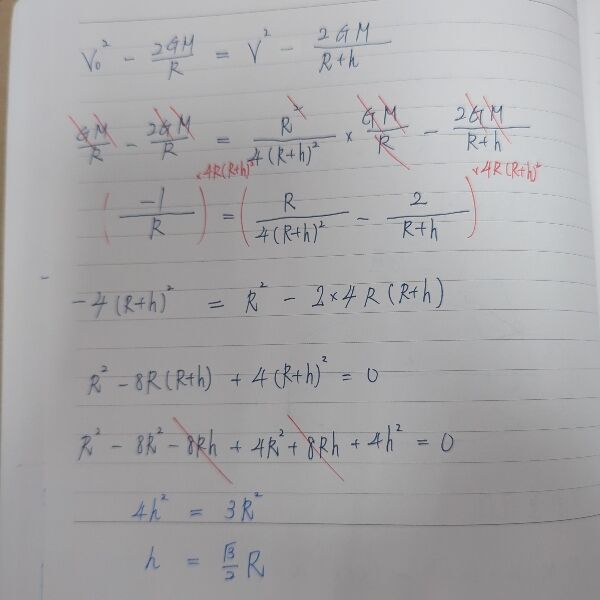 V₀² - 2GM/R = V² - 2GM/(R+h)
GM/R - 2GM/R = R²/4(R+h)² × GM/R - 2GM/(R+h)
(-1/R) ×4R(R+h)² = (R/4(R+h)² - 2/(R+h)) ×4R(R+h)²
-4(R+h)² = R² - 2×4R(R+h)
R² - 8R(R+h) + 4(R+h)² = 0
R² - 8R² - 8Rh + 4R² + 8Rh + 4h² = 0
4h² = 3R²
h = √3/2 R